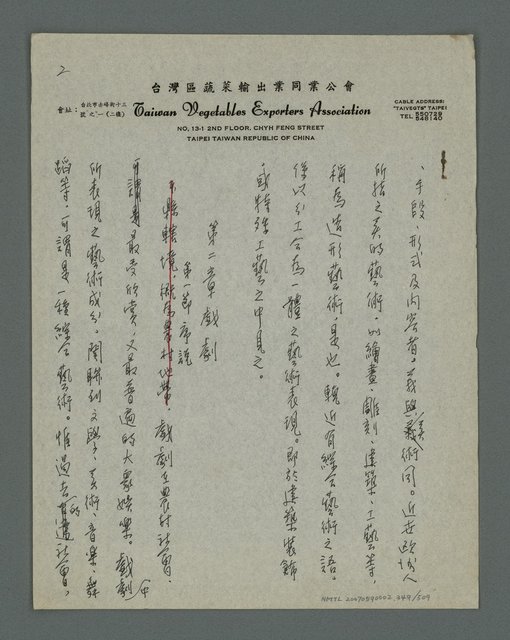 2
台灣區蔬菜輸出業同業公會
會址：台北市赤峰街十三號之一（二樓）
Taiwan Vegetables Exporters Association
NO. 13-1 2ND FLOOR. CHYH FENG STREET
TAIPEI TAIWAN REPUBLIC OF CHINA
CABLE ADDRESS:
"TAIVEGTS" TAIPEI
TEL 550729
548140
、手段、形式及內容者。義與美術同。近世歐洲人
所指之美的藝術，以繪畫、雕刻、建築、工藝等，
稱為造形藝術是也。輓近有綜合藝術之語。
係以分工合為一體之藝術表現。即於建築裝飾
或特殊工藝之中見之。
第二章 戲劇
第一節 序說
縣轄境，概為農村地帶。戲劇在農村社會，
可謂最受欣賞，又最普遍的大眾娛樂。戲劇中
所表現之藝術成分。關聯到文學、美術、音樂、舞
蹈等，可謂是一種綜合藝術。惟過去的社會，
NMTL 20070590002 349/509